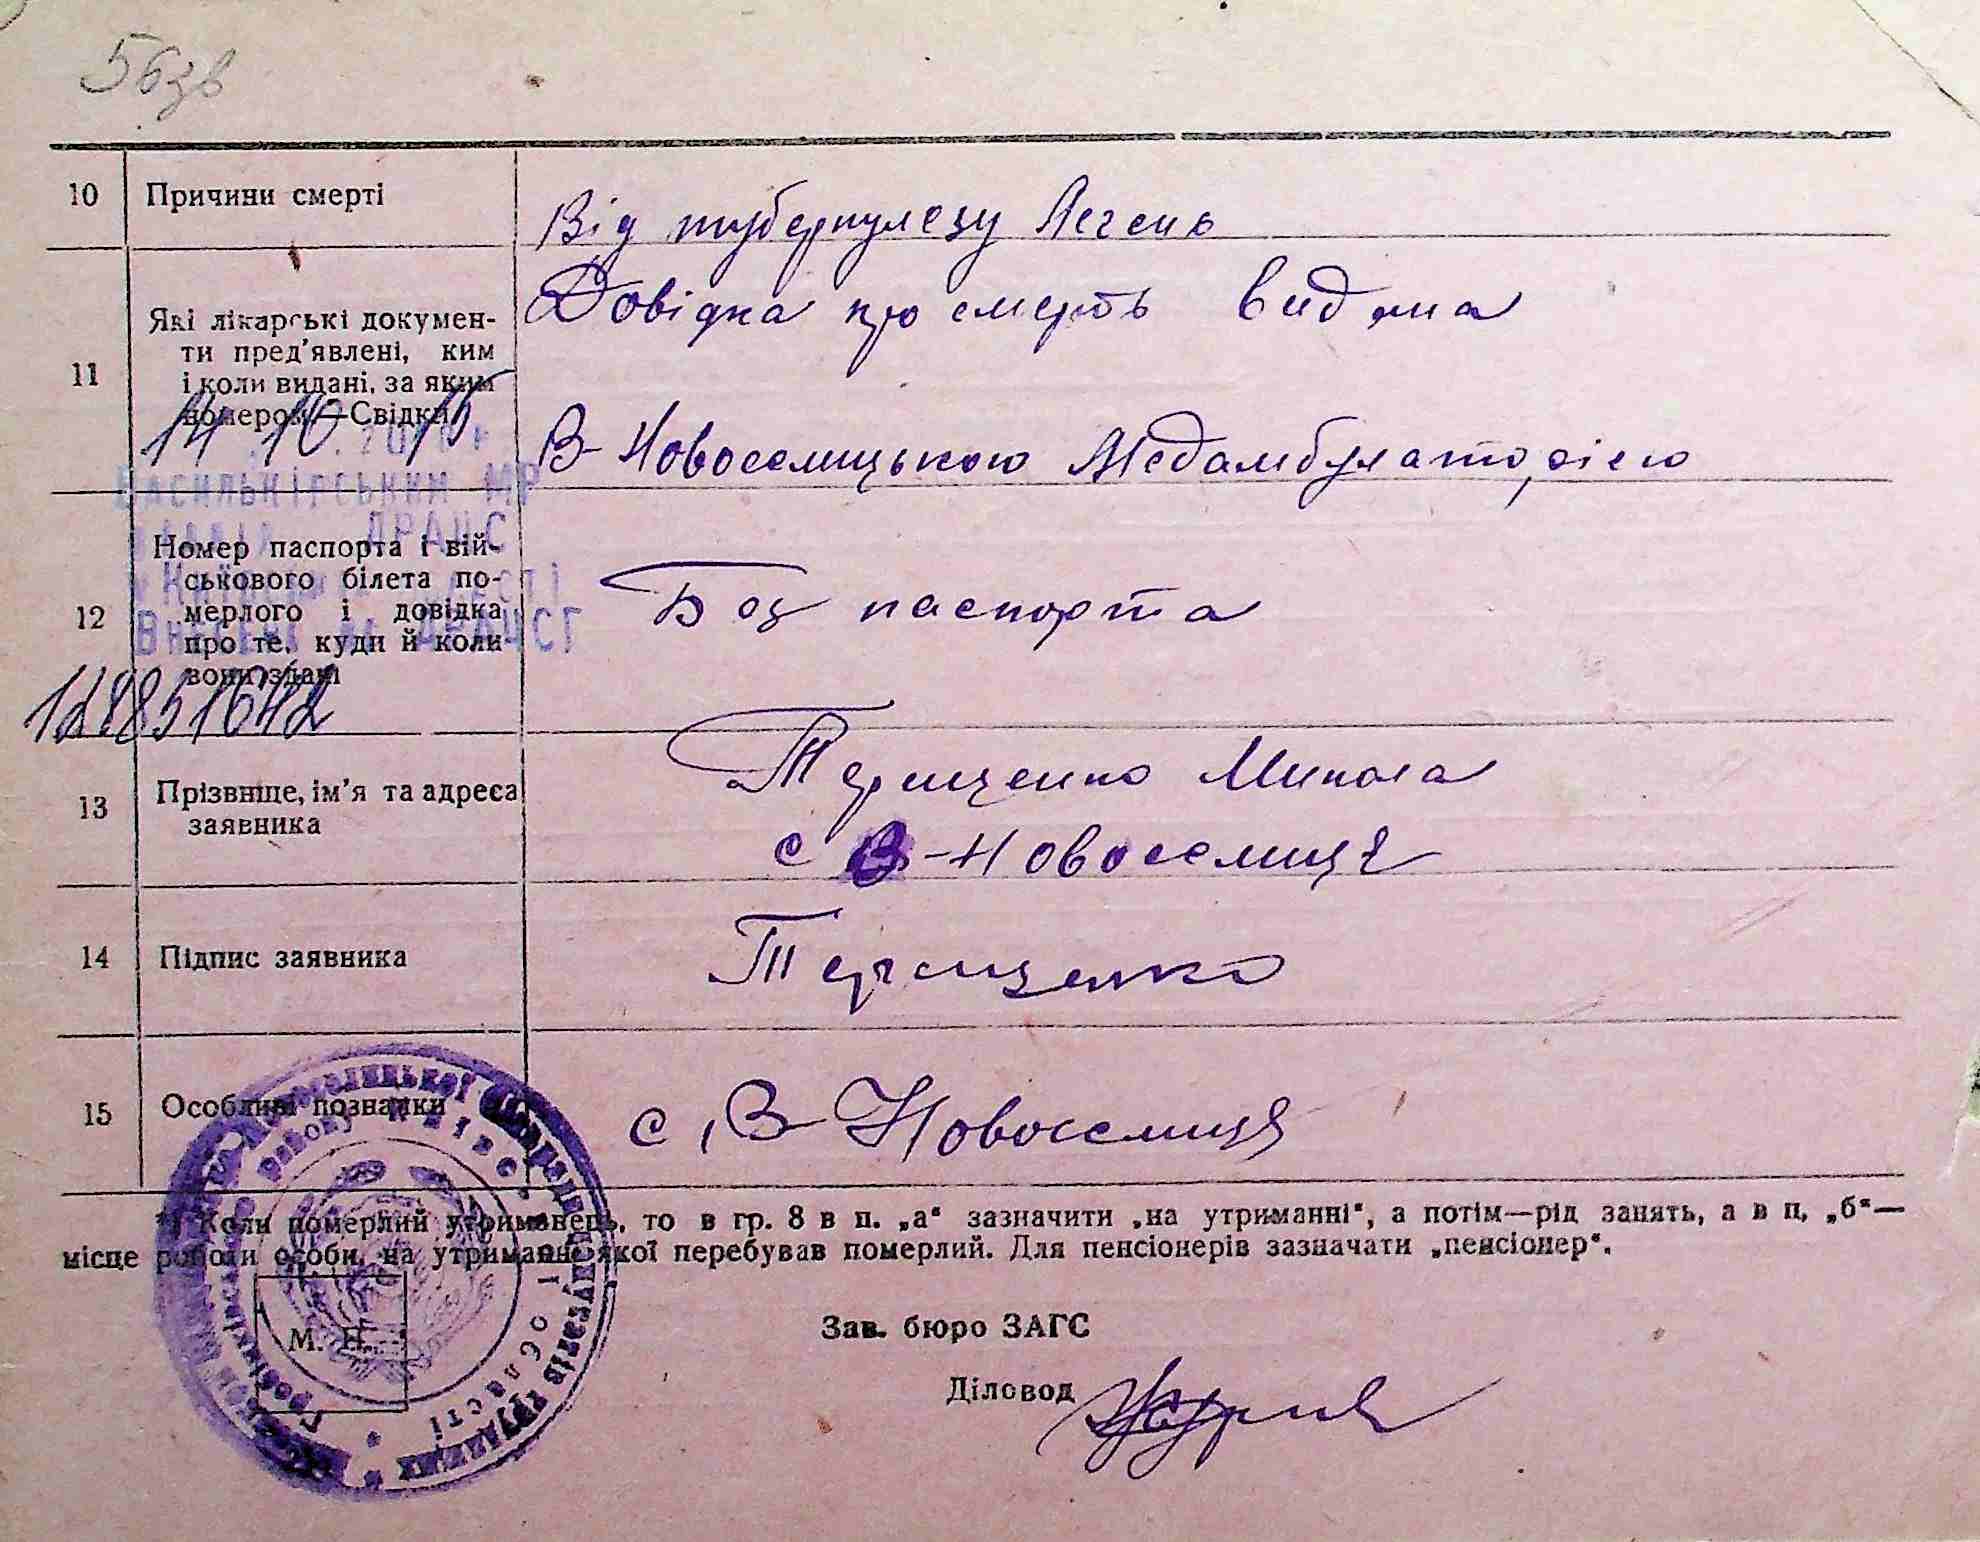 56зв
10 Причини смерті
Від туберкулезу Легень
11 Які лікарські докумен-
ти пред'явлені, ким
і коли видані, за яким
номером.—Свідки
Довідка про смерть видана
В-Новоселицькою Медамбулаторією
14 10 15
Васильківським МР
ДРАЦС
12 Номер паспорта і вій-
ськового білета по-
мерлого і довідка
про те, куди й коли
вони здані
Без паспорта
13 Прізвище, ім'я та адреса
заявника
Терещенко Микола
с В-Новоселиця
14 Підпис заявника
Терещенко
15 Особливі познаки
с. В-Новоселиця
*) Коли померлий утриманець, то в гр. 8 в п. „а“ зазначити „на утриманні“, а потім—рід занять, а в п. „б“—
місце роботи особи, на утриманні якої перебував померлий. Для пенсіонерів зазначати „пенсіонер“.
М. П.
Зав. бюро ЗАГС
Діловод